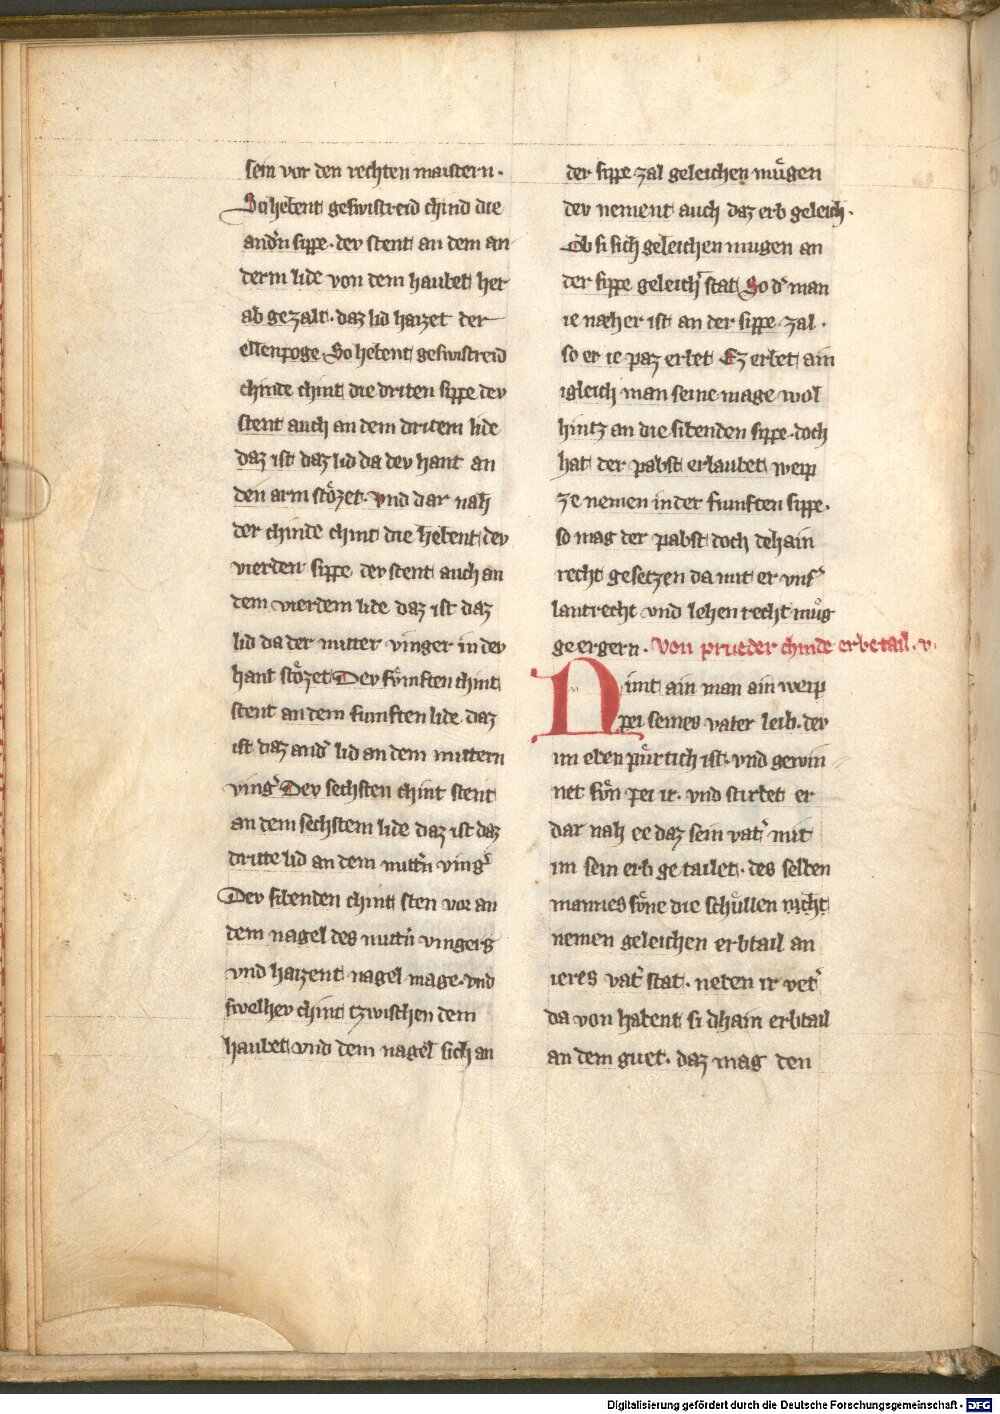 sein vor den rechten maistern.
So hebent geswistreid chind die
andˀn sippe. dev stent an dem an
derm lide von dem haubet her
ab gezalt. daz lid haizet der
ellenpoge. So hebent geswistreid
chinde chint die driten sippe dev
stent auch an dem dritem lide
daz ist daz lid da dev hant an
den arm stoͤzet. vnd dar nah
der chinde chint die hebent dev
vierden sippe dev stent auch an
dem vierdem lide daz ist daz
lid da der mitter vinger in dev
hant stoͤzet Dev fuͤmften chint
stent an dem fiumften lide daz
ist daz andˀ lid an dem mittern
vingˀ Dev sechsten chint stent
an dem sechstem lide daz ist daz
dritte lid an dem mittˀn vingˀ
Dev sibenden chint sten vor an
dem nagel des mittˀn vingers
vnd haizent nagel mage. vnd
swelhev chint tzwischen dem
haubet vnd dem nagel sich an
der sippe zal geleichen muͤgen
dev nement auch daz erb geleich.
Ob si sich geleichen mugen an
der sippe geleichˀ stat So dˀ man
ie næher ist an der sippe zal.
so er ie paz erbet Ez erbet ain
igleich man seine mage wol
hintz an die sibenden sippe. doch
hat der pabst erlaubet weip
ze nemen in der fiunften sippe.
so mag der pabst doch dehain
recht gesetzen da mit er vnsˀ
lantrecht vnd lehen recht muͤg
ge ergern. Von prueder chinde erbetail. v.
Nimt ain man ain weip
pei seines vater leib. dev
im eben puͤrtich ist. vnd gewin
net suͤn pei ir. vnd stirbet er
dar nah ee daz sein vatˀ mit
im sein erb ge tailet. des selben
mannes suͤne die schuͤllen nicht
nemen geleichen erbtail an
ieres vatˀ stat. neben ir vetˀ
da von habent si dhain erbtail
an dem guet. daz mag den
Digitalisierung gefördert durch die Deutsche Forschungsgemeinschaft - DFG